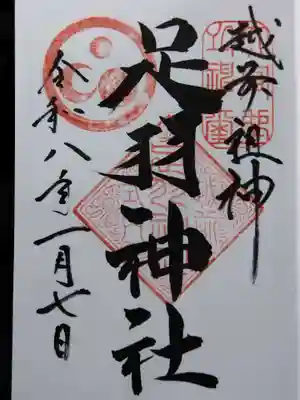 越前祖神
足羽神社
令和八年一月七日